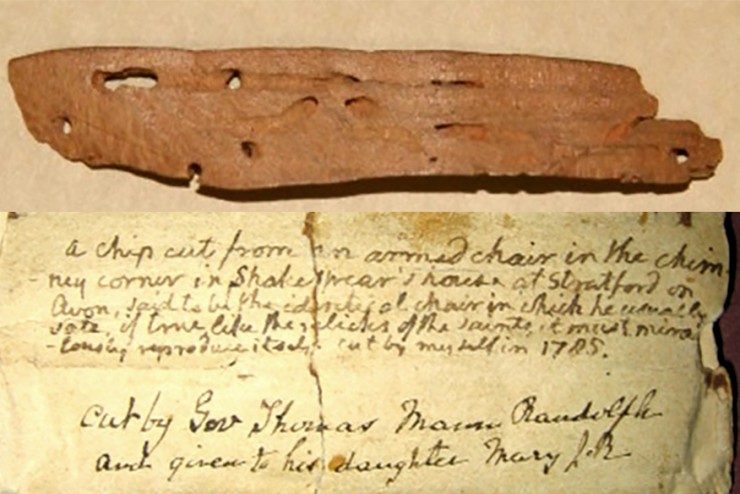 a chip cut from an armed chair in the chim-
-ney corner in Shakespear's house at Stratford on
Avon, said to be the identical chair in which he usually
sate. if true like the relicks of the saints it must mira-
-culously reproduce itself. cut by myself in 1785.
cut by Gov Thomas Mann Randolph
and given to his daughter Mary J. R